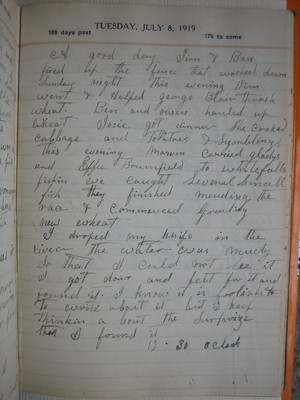 TUESDAY, JULY 8, 1919
189 days past 176 to come
A good day Jim & Ben
fixed up the fence that washed down
Sunday night this evening Jim
went & Helped george Blair thrash
wheat. Ben and owens hauled up
wheat Josie got dinner She Cooked
cabbage and Potatoes & Dumblings
this evening marvin Carried gladys
and Effie Brumfield to whitefalls
fishin we caught Several Small
fish they finished mending the
and & Commenced grinding
new wheat
I droped my knife in the
river the water was mudy
So that I Could not See it
I got down and felt for it and
found it. I know it is foolish to
to write about it but I keep
thinkin a bout the Surprize
that I found it
12 - 30 oclock